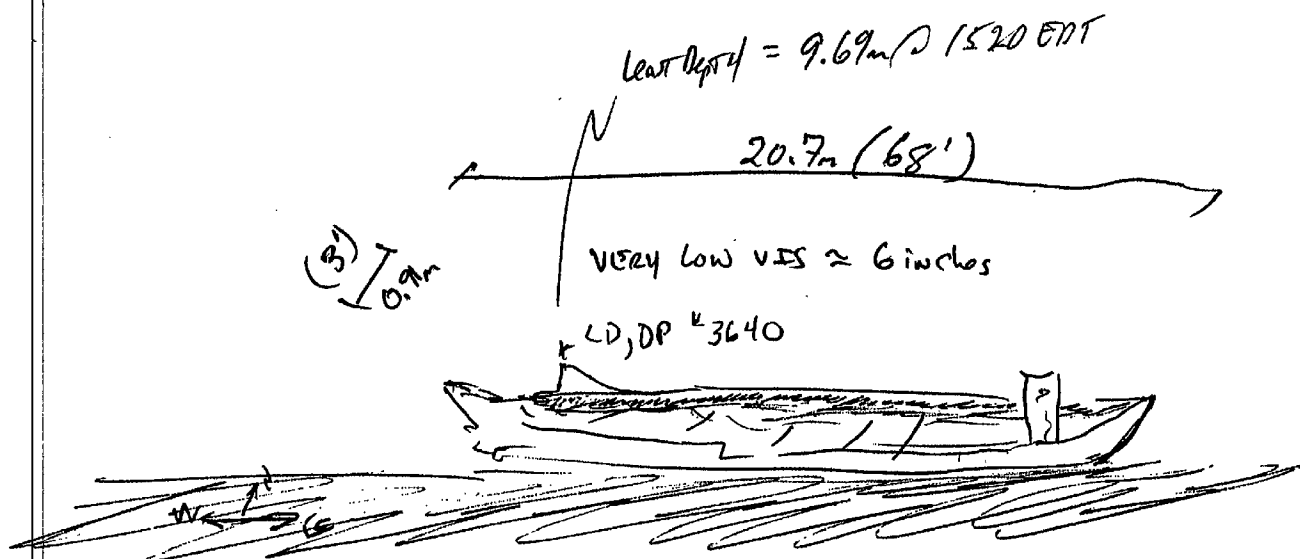 Least Depth = 9.69m @ 1520 EDT
N
20.7m (68')
(3')
0.91m
VERY LOW VIS ≈ 6 inches
LD, DP # 3640
N
W E